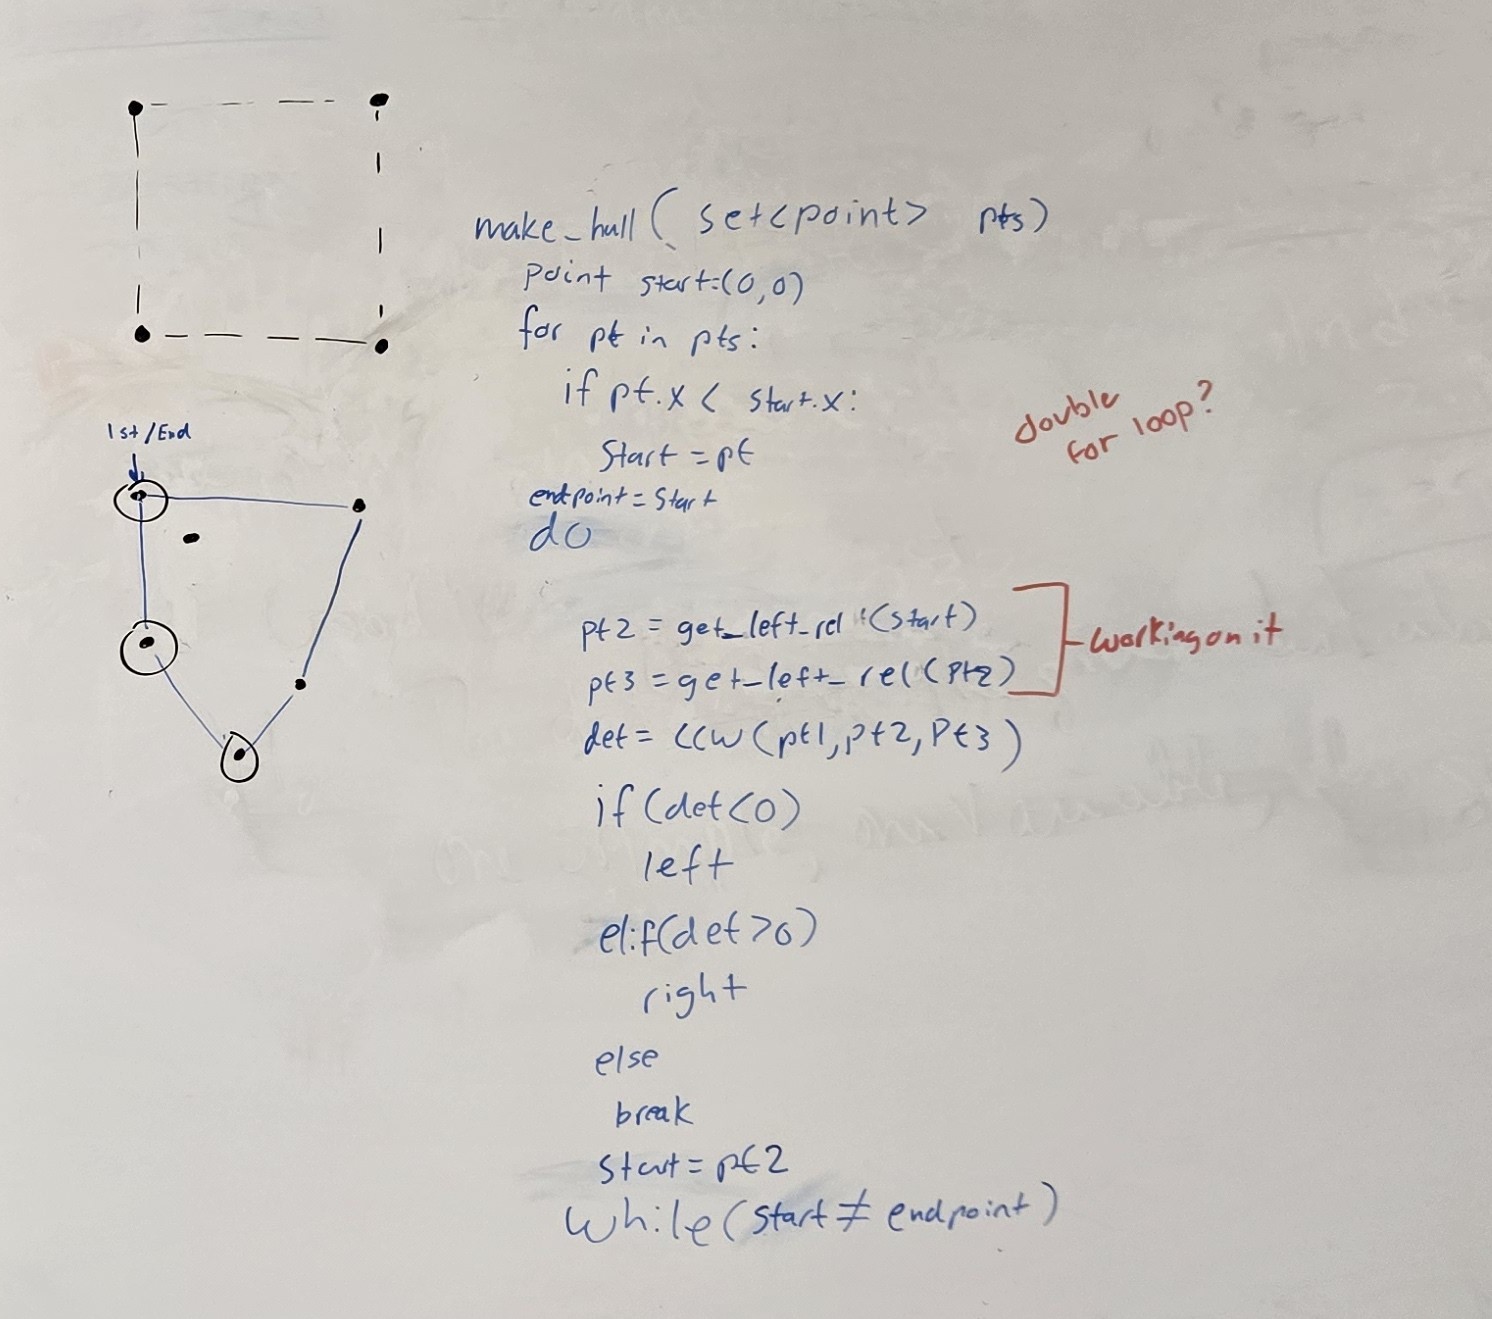 make_hull ( set<point> pts)
point start=(0,0)
for pt in pts:
if pt.x < start.x:
double for loop?
1st/End
Start = pt
endpoint = Start
do
pt2 = get_left_rel (start)
working on it
pt3 = get_left_rel (Pt2)
det = CCW (pt1, pt2, Pt3)
if (det<0)
left
elif(det>0)
right
else
break
start = pt2
while (start ≠ endpoint)